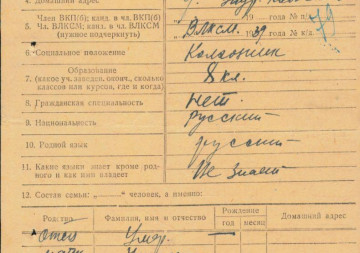 4. Домашний адрес
5. Член ВКП(б); канд. в чл. ВКП(б)
Чл. ВЛКСМ; канд. в чл. ВЛКСМ
(нужное подчеркнуть)
19 года № п/
ВЛКСМ 39
19 года № к/а
79
6. Социальное положение
Колхозник
7. Образование
(какое уч. заведен. оконч., сколько
классов или курсов, где и когда)
8 кл.
8. Гражданская специальность
Нет.
9. Национальность
русский
10. Родной язык
русский
11. Какие языки знает кроме род-
ного и как ими владеет
Не знает
12. Состав семьи: „ “ человек, а именно:
Родство
Фамилия, имя и отчество
Рождение
год
месяц
Домашний адрес
отец